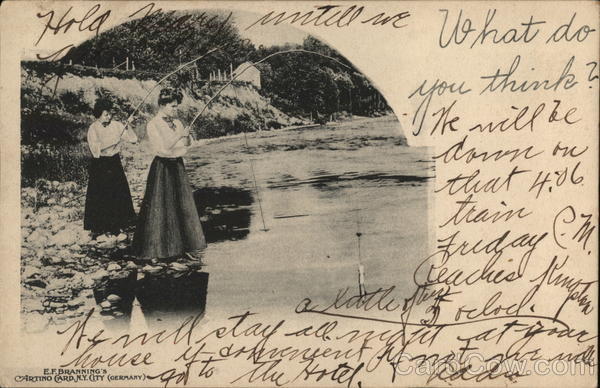 Hold mail untill we
What do
you think?
We will be
down on
that 4.06
train
Friday P.M.
Reaches Kingston
a little after
5 oclock.
We will stay all night at your
house if convenient if not we will
go to the Hotel.
E.F. BRANNING'S
ARTINO CARD, N.Y. CITY (GERMANY)
CardCow.com